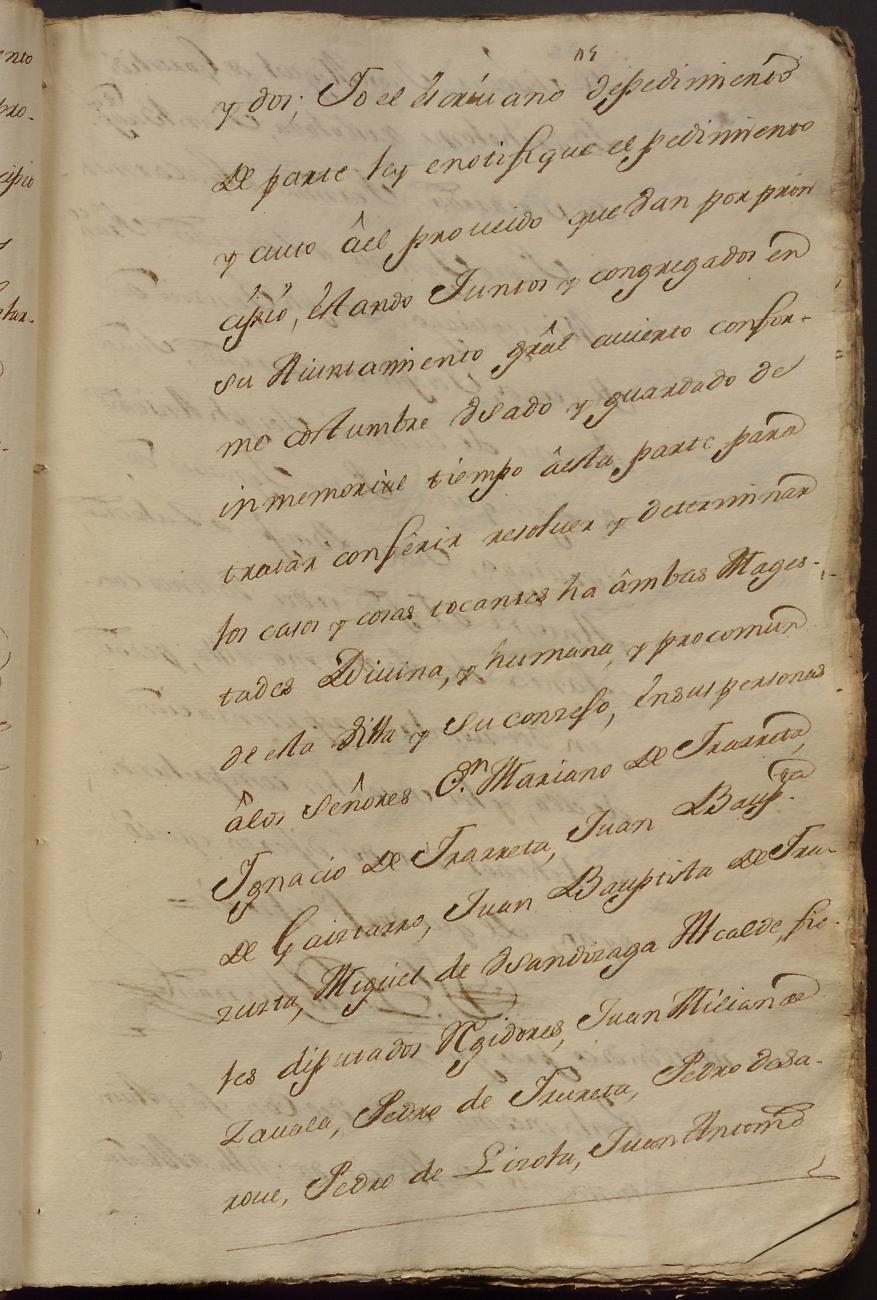 ento
bro-
cipio
y
ntar-
y dos; Yo el escriuano depedimiento
de parte ley enotifique el pedimiento
y auto âel proueido quedan por prin
cipio, estando Juntos y congregados en
su Aiuntamiento grâl auierto confor-
me costumbre vsado y guardado de
inmemorial tiempo âesta parte para
tratar conferir resoluer y determinar
los casos y cosas tocantes ha âmbas Mages-
tades Diuina, y humana, y procomun
de esta Villa y su conzejo, ensus personas
âlos señores Dn. Mariano de Trarreta,
Ygnacio de Trarreta, Juan Baupta.
de Gaiztarro, Juan Bauptista de Yru-
zurta, Miguel de Vsandizaga Alcalde, fie-
les diputados Rexidores, Juan Milian de
Zauala, Pedro de Yrureta, Pedro de Sa-
roue, Pedro de Lizola, Juan Antonio